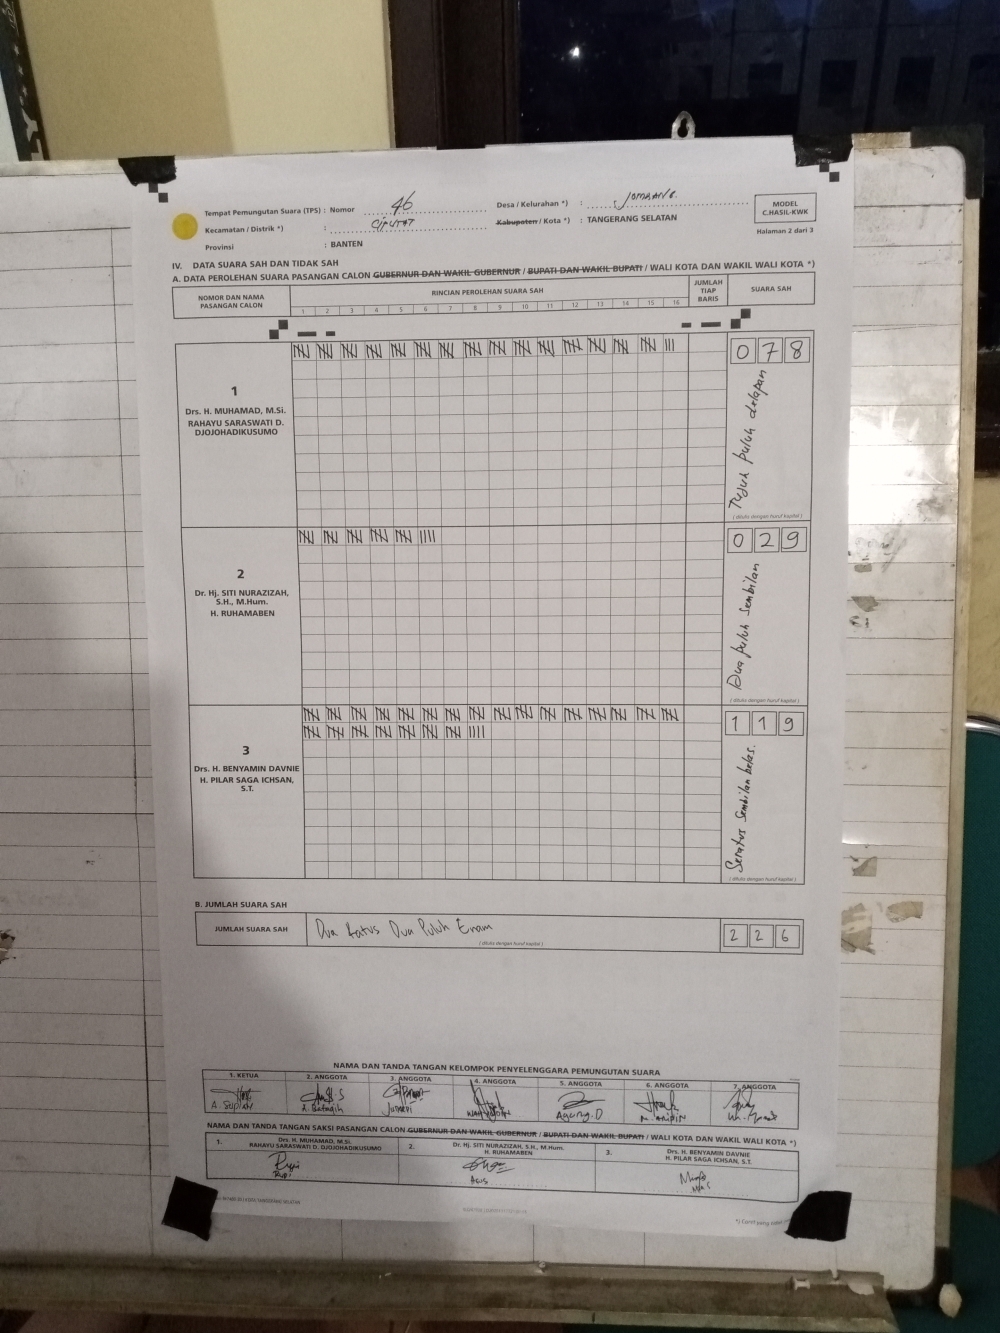 Tempat Pemungutan Suara (TPS) : Nomor 46
Kecamatan / Distrik *) : Ciputat
Provinsi : BANTEN
Desa / Kelurahan *) :
Kabupaten / Kota *) : TANGERANG SELATAN
MODEL
C.HASIL-KWK
Halaman 2 dari 3
IV. DATA SUARA SAH DAN TIDAK SAH
A. DATA PEROLEHAN SUARA PASANGAN CALON GUBERNUR DAN WAKIL GUBERNUR / BUPATI DAN WAKIL BUPATI / WALI KOTA DAN WAKIL WALI KOTA *)
NOMOR DAN NAMA
PASANGAN CALON
RINCIAN PEROLEHAN SUARA SAH
1 2 3 4 5 6 7 8 9 10 11 12 13 14 15 16
JUMLAH
TIAP
BARIS
SUARA SAH
1
Drs. H. MUHAMAD, M.Si.
RAHAYU SARASWATI D.
DJOJOHADIKUSUMO
0 7 8
Tujuh puluh delapan
( ditulis dengan huruf kapital )
2
Dr. Hj. SITI NURAZIZAH,
S.H., M.Hum.
H. RUHAMABEN
0 2 9
Dua puluh Sembilan
( ditulis dengan huruf kapital )
3
Drs. H. BENYAMIN DAVNIE
H. PILAR SAGA ICHSAN,
S.T.
1 1 9
Seratus Sembilan belas.
( ditulis dengan huruf kapital )
B. JUMLAH SUARA SAH
JUMLAH SUARA SAH
Dua Ratus Dua Puluh Enam
( ditulis dengan huruf kapital )
2 2 6
NAMA DAN TANDA TANGAN KELOMPOK PENYELENGGARA PEMUNGUTAN SUARA
1. KETUA
2. ANGGOTA
3. ANGGOTA
4. ANGGOTA
5. ANGGOTA
6. ANGGOTA
7. ANGGOTA
Agung.D
NAMA DAN TANDA TANGAN SAKSI PASANGAN CALON GUBERNUR DAN WAKIL GUBERNUR / BUPATI DAN WAKIL BUPATI / WALI KOTA DAN WAKIL WALI KOTA *)
1. Drs. H. MUHAMAD, M.Si.
RAHAYU SARASWATI D. DJOJOHADIKUSUMO
2. Dr. Hj. SITI NURAZIZAH, S.H., M.Hum.
H. RUHAMABEN
3. Drs. H. BENYAMIN DAVNIE
H. PILAR SAGA ICHSAN, S.T.
Agus